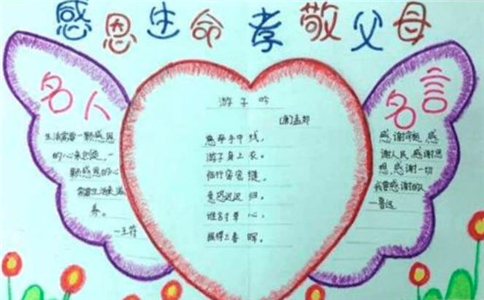 感恩生命 孝敬父母
名人
生活需要一颗感恩
的心来创造，一
颗感恩的心
需要生活来滋
养。
—王符
游子吟
(唐)孟郊
慈母手中线，
游子身上衣。
临行密密缝，
意恐迟迟归。
谁言寸草心，
报得三春晖。
名言
感谢命运，感
谢人民，感谢思
想，感谢一切
我要感谢的人
—鲁迅